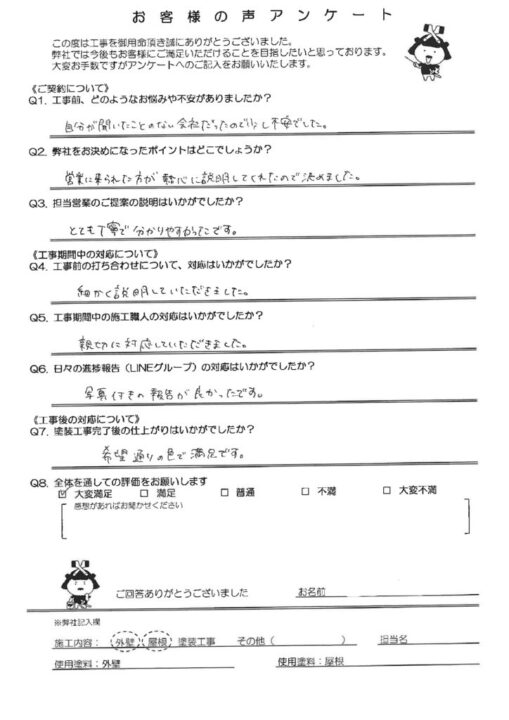 お客様の声アンケート
この度は工事を御用命頂き誠にありがとうございました。
弊社では今後もお客様にご満足いただけることを目指したいと思っております。
大変お手数ですがアンケートへのご記入をお願いいたします。
《ご契約について》
Q1. 工事前、どのようなお悩みや不安がありましたか?
自分が聞いたことのない会社だったので少し不安でした。
Q2. 弊社をお決めになったポイントはどこでしょうか?
営業に来られた方が熱心に説明してくれたので決めました。
Q3. 担当営業のご提案の説明はいかがでしたか?
とても丁寧で分かりやすかったです。
《工事期間中の対応について》
Q4. 工事前の打ち合わせについて、対応はいかがでしたか?
細かく説明していただきました。
Q5. 工事期間中の施工職人の対応はいかがでしたか?
親切に対応していただきました。
Q6. 日々の進捗報告(LINEグループ)の対応はいかがでしたか?
写真付きの報告が良かったです。
《工事後の対応について》
Q7. 塗装工事完了後の仕上がりはいかがでしたか?
希望通りの色で満足です。
Q8. 全体を通しての評価をお願いします
☑ 大変満足 □ 満足 □ 普通 □ 不満 □ 大変不満
感想があればお聞かせください
ご回答ありがとうございました お名前
※弊社記入欄
施工内容: 外壁 屋根 塗装工事 その他( ) 担当名
使用塗料:外壁 使用塗料:屋根